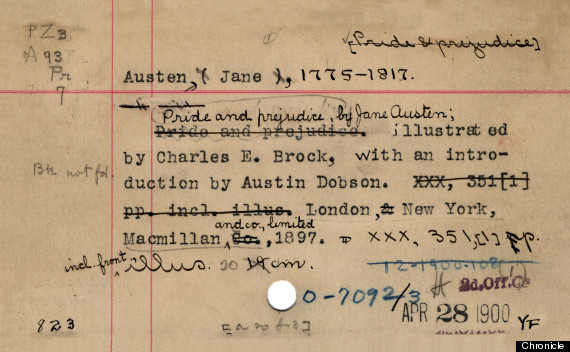 PZ 3
A 93
Pr
7
[Pride & prejudice]
Austen, ( Jane ), 1775-1817.
Pride and prejudice, by Jane Austen;
Pride and prejudice. illustrated
by Charles E. Brock, with an intro-
duction by Austin Dobson. XXX, 351[1]
pp. incl. illus. London, & New York,
and co., limited
Macmillan Co., 1897. XXX, 351,[1] pp.
incl. front. illus. 20 cm.
12-1900-108
0-7092/3
2d. Off. C
APR 28 1900 YF
823
Chronicle